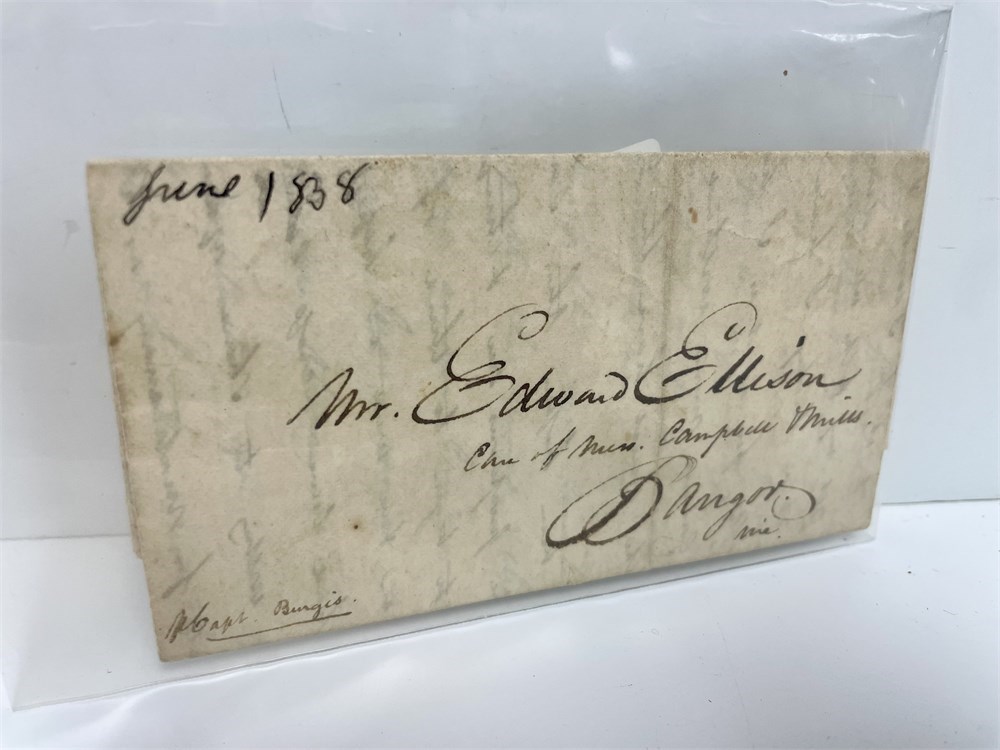 June 1838
Mr. Edward Ellison
Care of Mess. Campbell & Mills.
Bangor.
Me.
Capt. Burgis.